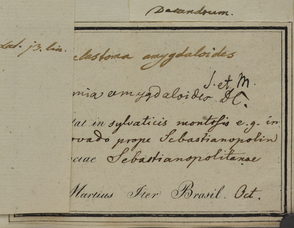 Decandrum.
Lat. j3. lin.
lastoma amygdaloides
S. et M.
mia amygdaloides DC.
tat in sylvaticis montosis e.g. in
ovado prope Sebastianopolin
ciae Sebastianopolitanae
Martius Iter Brasil. Oct.